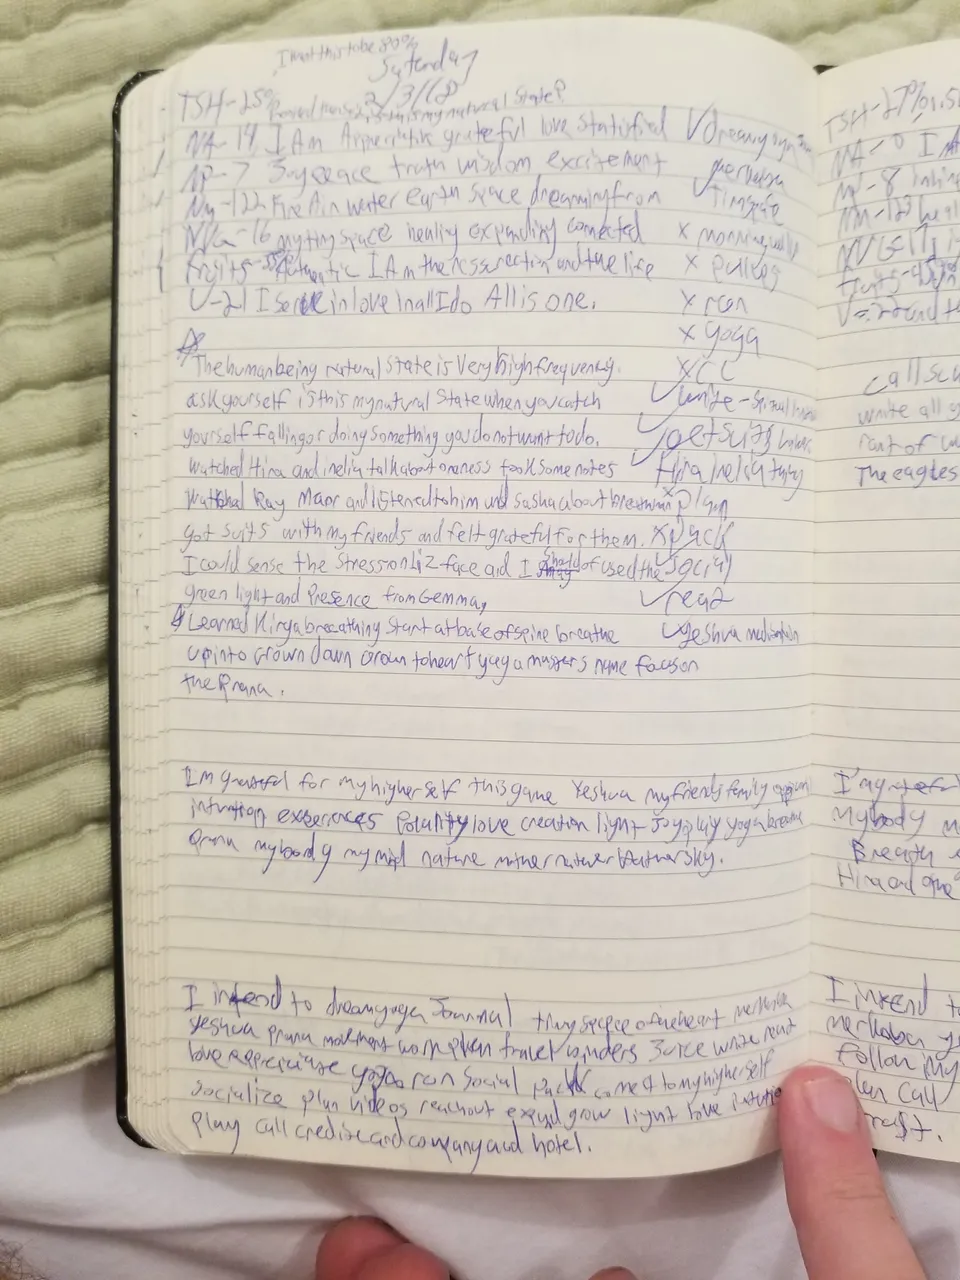 I want this to be 80%
Saturday
2/3/18
TSH-25%
is this my natural State?
NA-14 I Am Appreciative grateful love Satisfied
NP-7 Joy peace truth wisdom excitement
NM-122 Fire Air water earth space dreaming from
NVG-16 my tiny space healing expanding connected
Fruits- Authentic I Am the ressurection and the life
V-21 I Serve in love in all I do All is one.
✓ Dreamyoga
merkaba
✓ Tinyspace
x morning walk
x pulleg
x ron
x yoga
x CC
✓ write - Spiritual
✓ get suits
✓ Hina/nelia
x plan
x pack
✓ social
✓ read
✓ Yeshua meditation
The human being natural state is Very high frequency.
ask yourself is this my natural State when you catch
yourself falling or doing something you do not want to do.
Watched Hina and inelia talk about oneness took some notes
Watched Ray Maor and listened to him and sasha about breatharian
got suits with my friends and felt grateful for them.
I could sense the stress on Liz face and I should of used the
green light and Presence from Gemma,
Learned Kirya breathing Start at base of spine breathe
up into crown down crown to heart yuga masters name focus on
the Prana.
Im grateful for my higher self this game Yeshua my friends family
intuition experiences Polarity love creation light Joy play yoga breathe
Prana my body my mind nature mother nature Father sky.
I intend to dreamyoga Journal tiny space of the heart merkaba
Yeshua prana movement work plan travel wonders Juice write read
love appreciate yoga run Social pack connect to my higher self
Socialize plan videos reachout expand grow light love intuition
play call credit card company and hotel.
TSH-27%
NA-0 I A
NP-8
NM-123
NVG-17
V-22 and th
call
write all y
Part of
The eagles
I'm gratef
My body
Breath
Hina and
I intend to
merkaba ye
Follow my
plan call